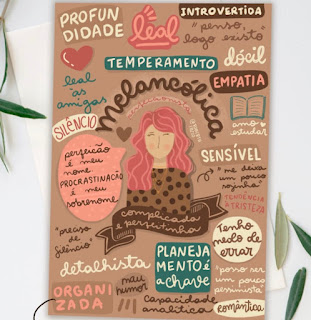 PROFUN
DIDADE
leal
INTROVERTIDA
"penso,
logo existo"
TEMPERAMENTO
dócil
leal
às
amigas
EMPATIA
melancólica
amo
estudar
SILÊNCIO
perfeição
é meu
nome
PROCRASTINAÇÃO
é meu
sobrenome
SENSÍVEL
"me deixa
um pouco
sozinha"
TENDÊNCIA
À TRISTEZA
complicada
e perfeitinha
"preciso
de
silêncio"
Tenho
medo de
errar
detalhista
PLANEJA
MENTO é
a chave
"posso ser
um pouco
pessimista"
ORGANI
ZADA
mau
humor
capacidade
analítica
romântica